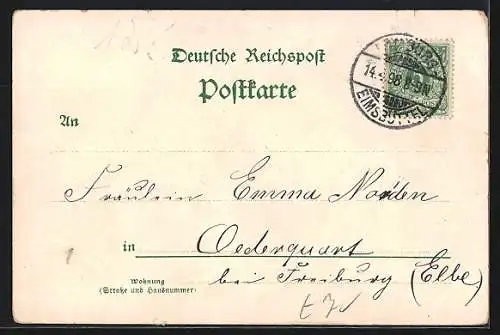 Deutsche Reichspost
Postkarte
HAMBURG
14.4.98. 8-9N
EIMSBÜTTEL
An
Fräulein Emma Norden
in Oederquart
bei Freiburg (Elbe)
Wohnung
(Straße und Hausnummer)